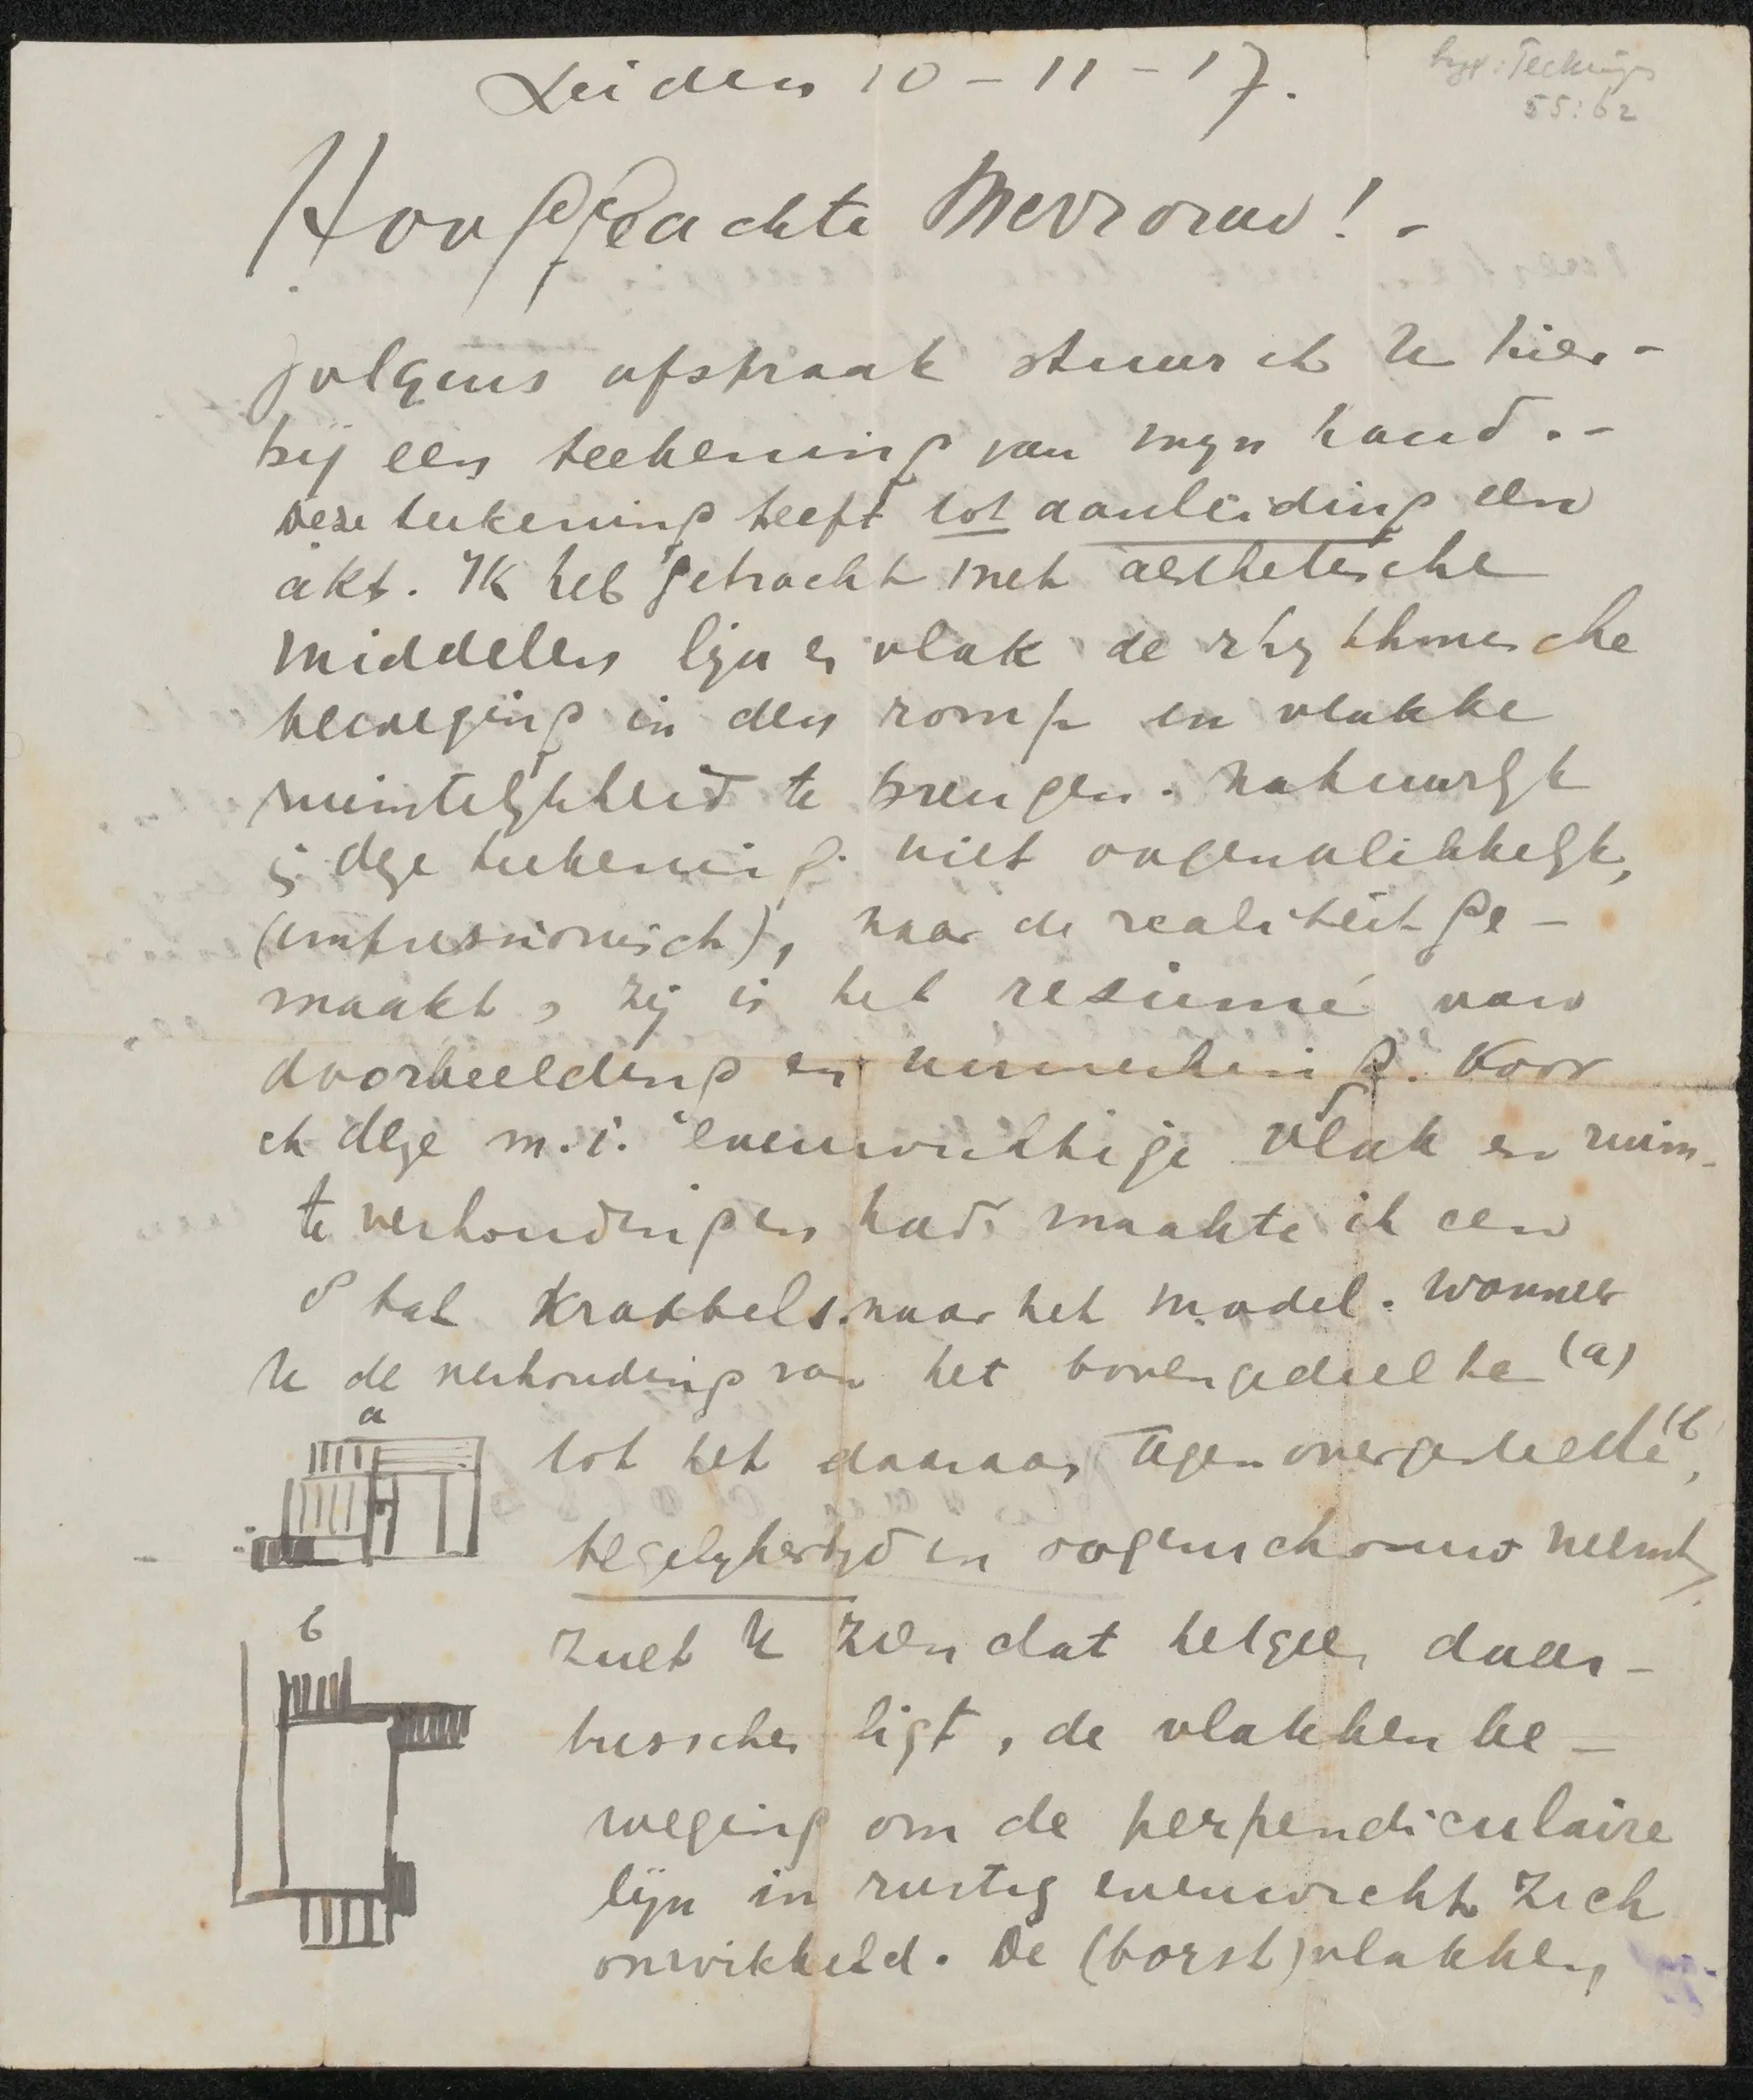 Leiden 10-11-17.
55:62
Hooggeachte Mevrouw!-
Volgens afspraak stuur ik U hier-
bij een teekening van mijn hand.-
Deze teekening heeft tot aanleiding een
akt. Ik heb getracht met aesthetische
middelen lijn en vlak de rhythmische
beweging in den romp en vlakke
ruimtelijkheid te brengen. Natuurlijk
is deze teekening niet oogenblikkelijk,
(impressionisch), naar de realiteit ge-
maakt, zij is het resumé van
doorbeelding en . Voor
ik deze m.i. evenwichtige vlak en ruim-
te verhoudingen had maakte ik een
8 tal krabbels naar het model. Wanneer
U de verhouding van het bovengedeelte (a)
a
tot het daaraan tegenovergestelde (b,
tegelijkertijd in oogenschouw neemt,
b
zult U zien dat hetgeen daar-
tusschen ligt, de vlakken be-
weging om de perpendiculaire
lijn in rustig evenwicht zich
onwikkeld. De (borst)vlakken